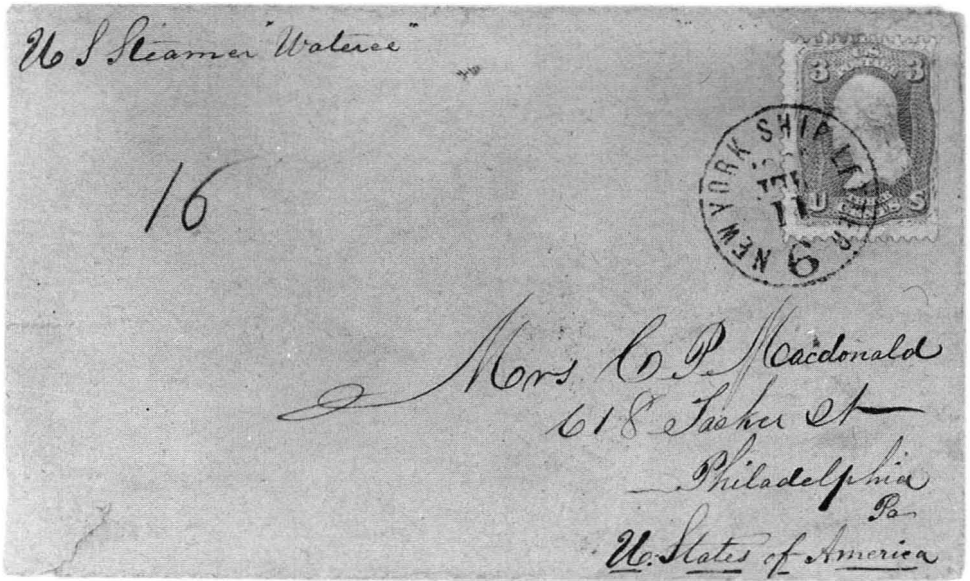 U S Steamer "Wateree"
3 3
U S
NEW YORK SHIP LETTER
11
6
16
Mrs. C P. Macdonald
618 Tasker St
Philadelphia
Pa
U. States of America